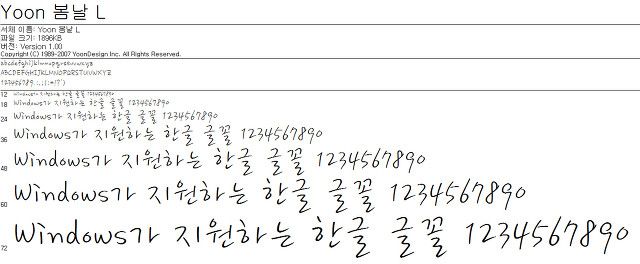 Yoon 봄날 L
서체 이름: Yoon 봄날 L
파일 크기: 1896KB
버전: Version 1.00
Copyright (C) 1989-2007 YoonDesign Inc. All Rights Reserved.
abcdefghijklmnopqrstuvwxyz
ABCDEFGHIJKLMNOPQRSTUVWXYZ
123456789.:,;(:*!?')
12 Windows가 지원하는 한글 글꼴 1234567890
18 Windows가 지원하는 한글 글꼴 1234567890
24 Windows가 지원하는 한글 글꼴 1234567890
36 Windows가 지원하는 한글 글꼴 1234567890
48 Windows가 지원하는 한글 글꼴 1234567890
60 Windows가 지원하는 한글 글꼴 1234567890
72 Windows가 지원하는 한글 글꼴 1234567890